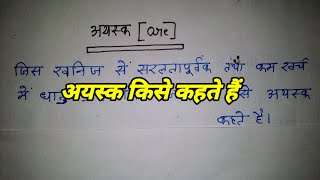 अयस्क [ore]
जिस खनिज से सरलतापूर्वक तथा कम खर्च
में धातु से अयस्क
अयस्क किसे कहते हैं
कहते है।